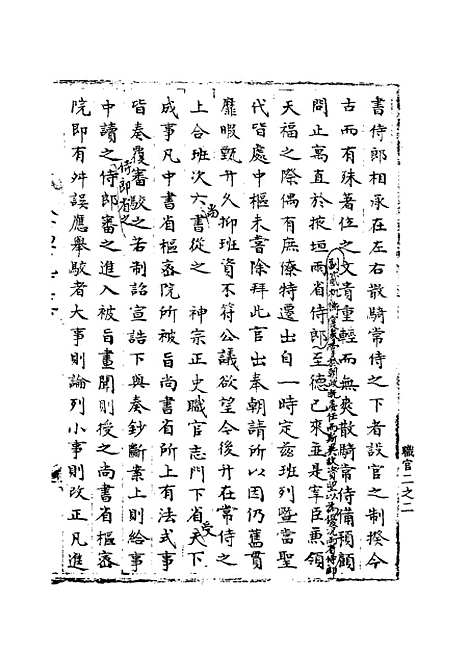 職官二之二
書侍郎相承在左右散騎常侍之下者設官之制揆今
古而有殊著位之文貴重輕而無爽散騎常侍備預顧
問止寓直於掖垣兩省侍郎至德已來並是宰臣兼領
天福之際偶有庶僚特遷出自一時定茲班列暨當聖
代皆處中樞未嘗除拜此官出奉朝請所以因仍舊貫
靡暇甄升久抑班資不符公議欲望今後升在常侍之
上合班次六尚書從之 神宗正史職官志門下省受天下
成事凡中書省樞密院所被旨尚書省所上有法式事
皆奏覆審駮之若制詔宣誥下與奏鈔斷案上則給事
中讀之侍郎審之進入被旨畫聞則授之尚書省樞密
院即有舛誤應舉駮者大事則論列小事則改正凡進
侍郎省之